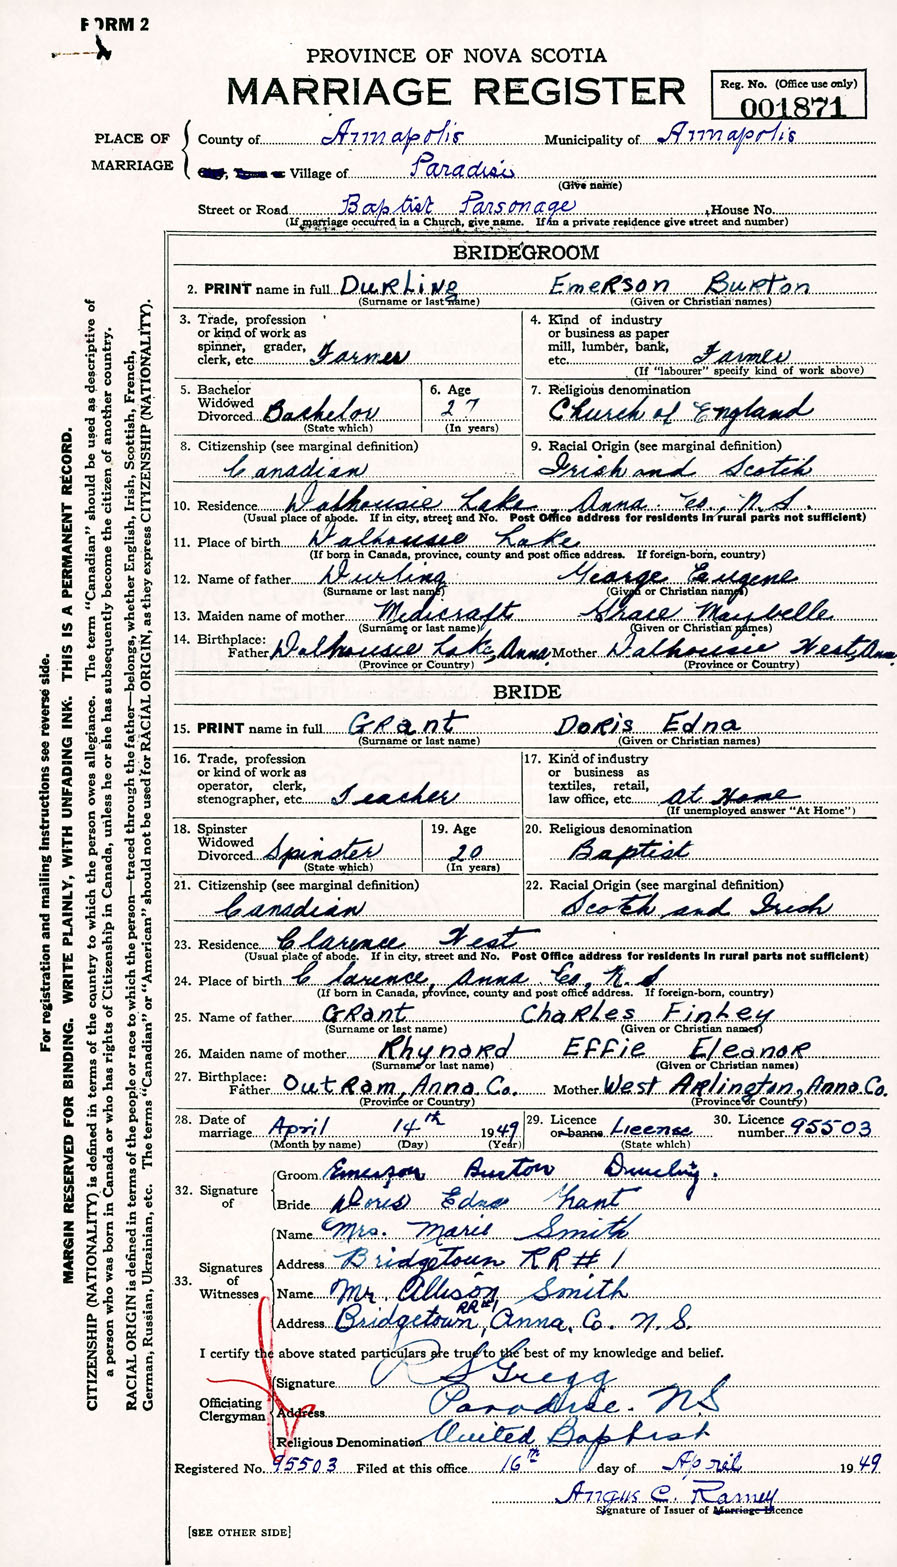 FORM 2
PROVINCE OF NOVA SCOTIA
MARRIAGE REGISTER
Reg. No. (Office use only)
001871
PLACE OF MARRIAGE
County of Annapolis Municipality of Annapolis
City, Town or Village of Paradise
(Give name)
Street or Road Baptist Parsonage , House No.
(If marriage occurred in a Church, give name. If in a private residence give street and number)
BRIDEGROOM
2. PRINT name in full Durling Emerson Burton
(Surname or last name) (Given or Christian names)
3. Trade, profession or kind of work as spinner, grader, clerk, etc. Farmer
4. Kind of industry or business as paper mill, lumber, bank, etc. Farmer
(If "labourer" specify kind of work above)
5. Bachelor Widowed Divorced Bachelor
(State which)
6. Age 27
(In years)
7. Religious denomination
Church of England
8. Citizenship (see marginal definition)
Canadian
9. Racial Origin (see marginal definition)
Irish and Scotch
10. Residence Dalhousie Lake, Anna Co., N.S.
(Usual place of abode. If in city, street and No. Post Office address for residents in rural parts not sufficient)
11. Place of birth Dalhousie Lake
(If born in Canada, province, county and post office address. If foreign-born, country)
12. Name of father Durling George Eugene
(Surname or last name) (Given or Christian names)
13. Maiden name of mother Medicraft Grace Maybelle
(Surname or last name) (Given or Christian names)
14. Birthplace:
Father Dalhousie Lake, Anna Mother Dalhousie West, Anna
(Province or Country) (Province or Country)
BRIDE
15. PRINT name in full Grant Doris Edna
(Surname or last name) (Given or Christian names)
16. Trade, profession or kind of work as operator, clerk, stenographer, etc. Teacher
17. Kind of industry or business as textiles, retail, law office, etc. At Home
(If unemployed answer "At Home")
18. Spinster Widowed Divorced Spinster
(State which)
19. Age 20
(In years)
20. Religious denomination
Baptist
21. Citizenship (see marginal definition)
Canadian
22. Racial Origin (see marginal definition)
Scotch and Irish
23. Residence Clarence West
(Usual place of abode. If in city, street and No. Post Office address for residents in rural parts not sufficient)
24. Place of birth Clarence, Anna Co, N.S
(If born in Canada, province, county and post office address. If foreign-born, country)
25. Name of father Grant Charles Finley
(Surname or last name) (Given or Christian names)
26. Maiden name of mother Rhynard Effie Eleanor
(Surname or last name) (Given or Christian names)
27. Birthplace:
Father Outram, Anna Co. Mother West Arlington, Anna Co.
(Province or Country) (Province or Country)
28. Date of marriage April 14th 1949
(Month by name) (Day) (Year)
29. Licence or banns License
(State which)
30. Licence number 95503
32. Signature of
Groom Emerson Burton Durling.
Bride Doris Edna Grant
33. Signatures of Witnesses
Name Mrs. Marie Smith
Address Bridgetown RR # 1
Name Mr. Allison Smith
Address Bridgetown, RR#1 Anna. Co. N.S.
I certify the above stated particulars are true to the best of my knowledge and belief.
Officiating Clergyman
Signature R S Gregg
Address Paradise. NS
Religious Denomination United Baptist
Registered No. 95503 Filed at this office 16th day of April 1949
Angus C. Ramey
Signature of Issuer of Marriage Licence
[SEE OTHER SIDE]
For registration and mailing instructions see reverse side.
MARGIN RESERVED FOR BINDING. WRITE PLAINLY, WITH UNFADING INK. THIS IS A PERMANENT RECORD.
CITIZENSHIP (NATIONALITY) is defined in terms of the country to which the person owes allegiance. The term "Canadian" should be used as descriptive of
a person who was born in Canada or who has rights of Citizenship in Canada, unless he or she has subsequently become the citizen of another country.
RACIAL ORIGIN is defined in terms of the people or race to which the person—traced through the father—belongs, whether English, Irish, Scottish, French,
German, Russian, Ukrainian, etc. The terms "Canadian" or "American" should not be used for RACIAL ORIGIN, as they express CITIZENSHIP (NATIONALITY).